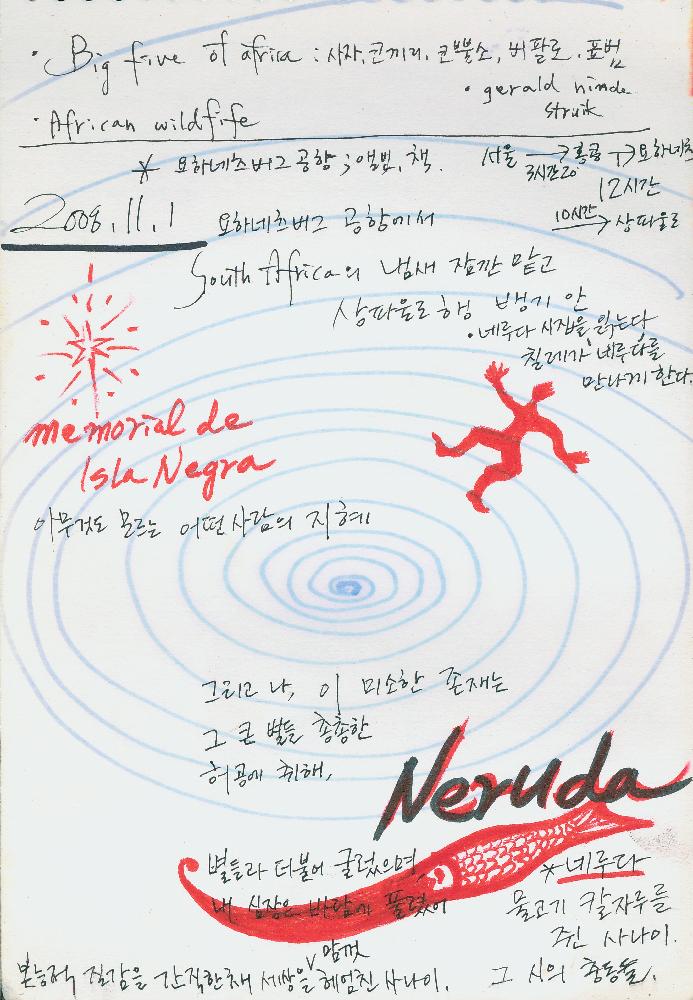 · Big five of africa : 사자, 코끼리, 코뿔소, 버팔로, 표범
· gerald hinde
struik
· African wildfife
* 요하네츠버그 공항 ; 앨범, 책.
서울 → 홍콩 → 요하네츠
3시간20 12시간
10시간 → 상파울로
2008.11.1
요하네츠버그 공항에서
South Africa의 냄새 잠깐 맡고
상파울로행 뱅기 안
· 네루다 시집을 읽는다
칠레가 네루다를
만나게 한다.
memorial de
Isla Negra
아무것도 모르는 어떤 사람의 지혜
그리고 나, 이 미소한 존재는
그 큰 별들 총총한
허공에 취해,
Neruda
별들과 더불어 굴렀으며,
내 심장은 바람에 풀렸어
* 네루다
물고기 칼자루를
쥔 사나이.
본능적 질감을 간직한채 세상을 ∨ 맘껏 헤엄친 사나이.
그 시의 충동들.